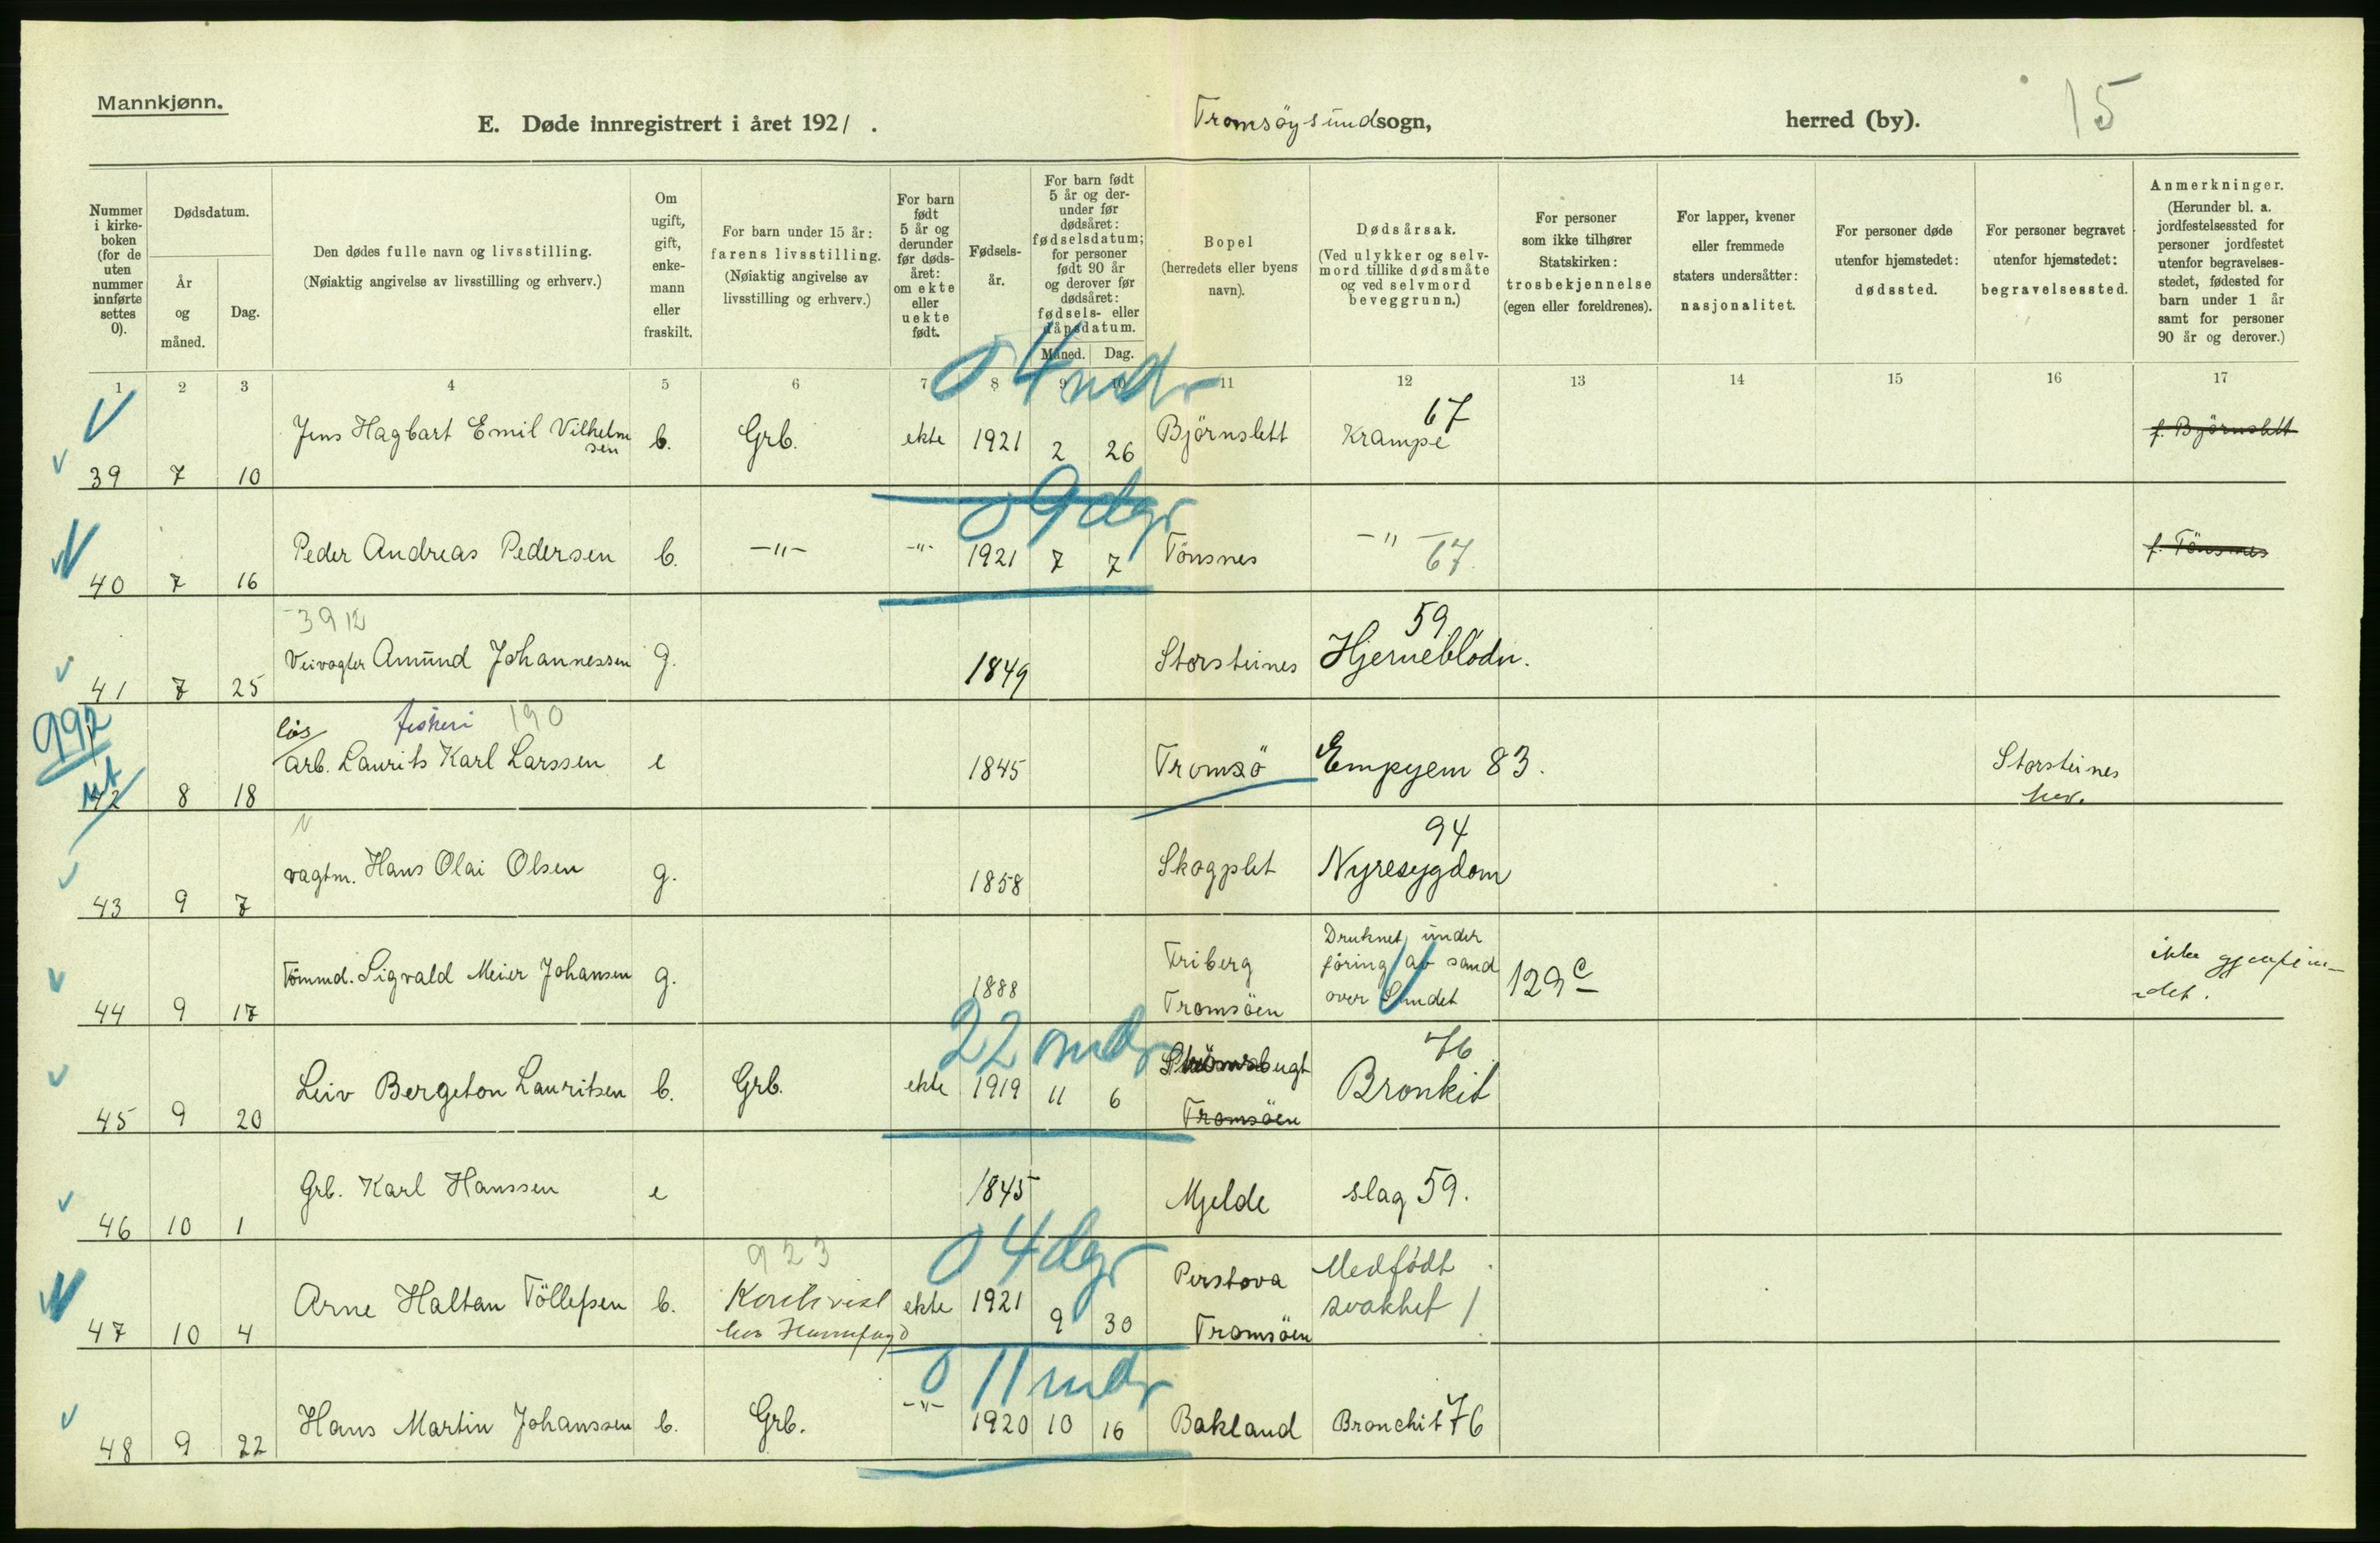 Mannkjønn.
E. Døde innregistrert i året 1921.
Tromsøysundsogn,
herred (by).
15
Nummer i kirke-boken (for de uten nummer innførte settes 0).
Dødsdatum.
År og måned.
Dag.
Den dødes fulle navn og livsstilling.
(Nøiaktig angivelse av livsstilling og erhverv.)
Om ugift, gift, enke-mann eller fraskilt.
For barn under 15 år: farens livsstilling.
(Nøiaktig angivelse av livsstilling og erhverv.)
For barn født 5 år og derunder før døds-året: om ekte eller uekte født.
Fødsels-år.
For barn født 5 år og der-under før dødsåret: fødselsdatum; for personer født 90 år og derover før dødsåret: fødsels- eller dåpsdatum.
Måned. Dag.
Bopel (herredets eller byens navn).
Dødsårsak.
(Ved ulykker og selv-mord tillike dødsmåte og ved selvmord beveggrunn.)
For personer som ikke tilhører Statskirken: trosbekjennelse (egen eller foreldrenes).
For lapper, kvener eller fremmede staters undersåtter: nasjonalitet.
For personer døde utenfor hjemstedet: dødssted.
For personer begravet utenfor hjemstedet: begravelsessted.
Anmerkninger.
(Herunder bl. a. jordfestelsessted for personer jordfestet utenfor begravelses-stedet, fødested for barn under 1 år samt for personer 90 år og derover.)
1 2 3 4 5 6 7 8 9 10 11 12 13 14 15 16 17
0 4 mdr
39 7 10 Jens Hagbart Emil Vilhelmsen b. Grb. ekte 1921 2 26 Björnslett Krampe 67 f. Björnslett
0 9 dgr
40 7 16 Peder Andreas Pedersen b. -"- -"- 1921 7 7 Tönsnes -"- 67. f. Tönsnes
3912
41 7 25 Veivogter Amund Johannessen g. 1849 Storsteines Hjerneblödn. 59
992 ut
fiskeri 190
42 8 18 løs arb. Laurits Karl Larssen e 1845 Tromsö Empyem 83. Storsteines
43 9 7 vagtm. Hans Olai Olsen g. 1858 Skogplet Nyresygdom 94
44 9 17 Tömmd. Sigvald Meier Johansen g. 1888 Friberg Tromsöen Druknet under föring av sand over Sundet 129 c ikke gjenfundet.
22 mdr
45 9 20 Leiv Bergeton Lauritsen b. Grb. ekte 1919 11 6 Tromsöen Bronkit 76
46 10 1 Grb. Karl Hanssen e 1845 Mjelde slag 59.
0 4 dgr
923
47 10 4 Arne Haltan Töllefsen b. ekte 1921 9 30 Perstova Tromsöen Medfödt svakhet 1
0 11 mdr
48 9 22 Hans Martin Johanssen b. Grb. -"- 1920 10 16 Bakland Bronchit 76